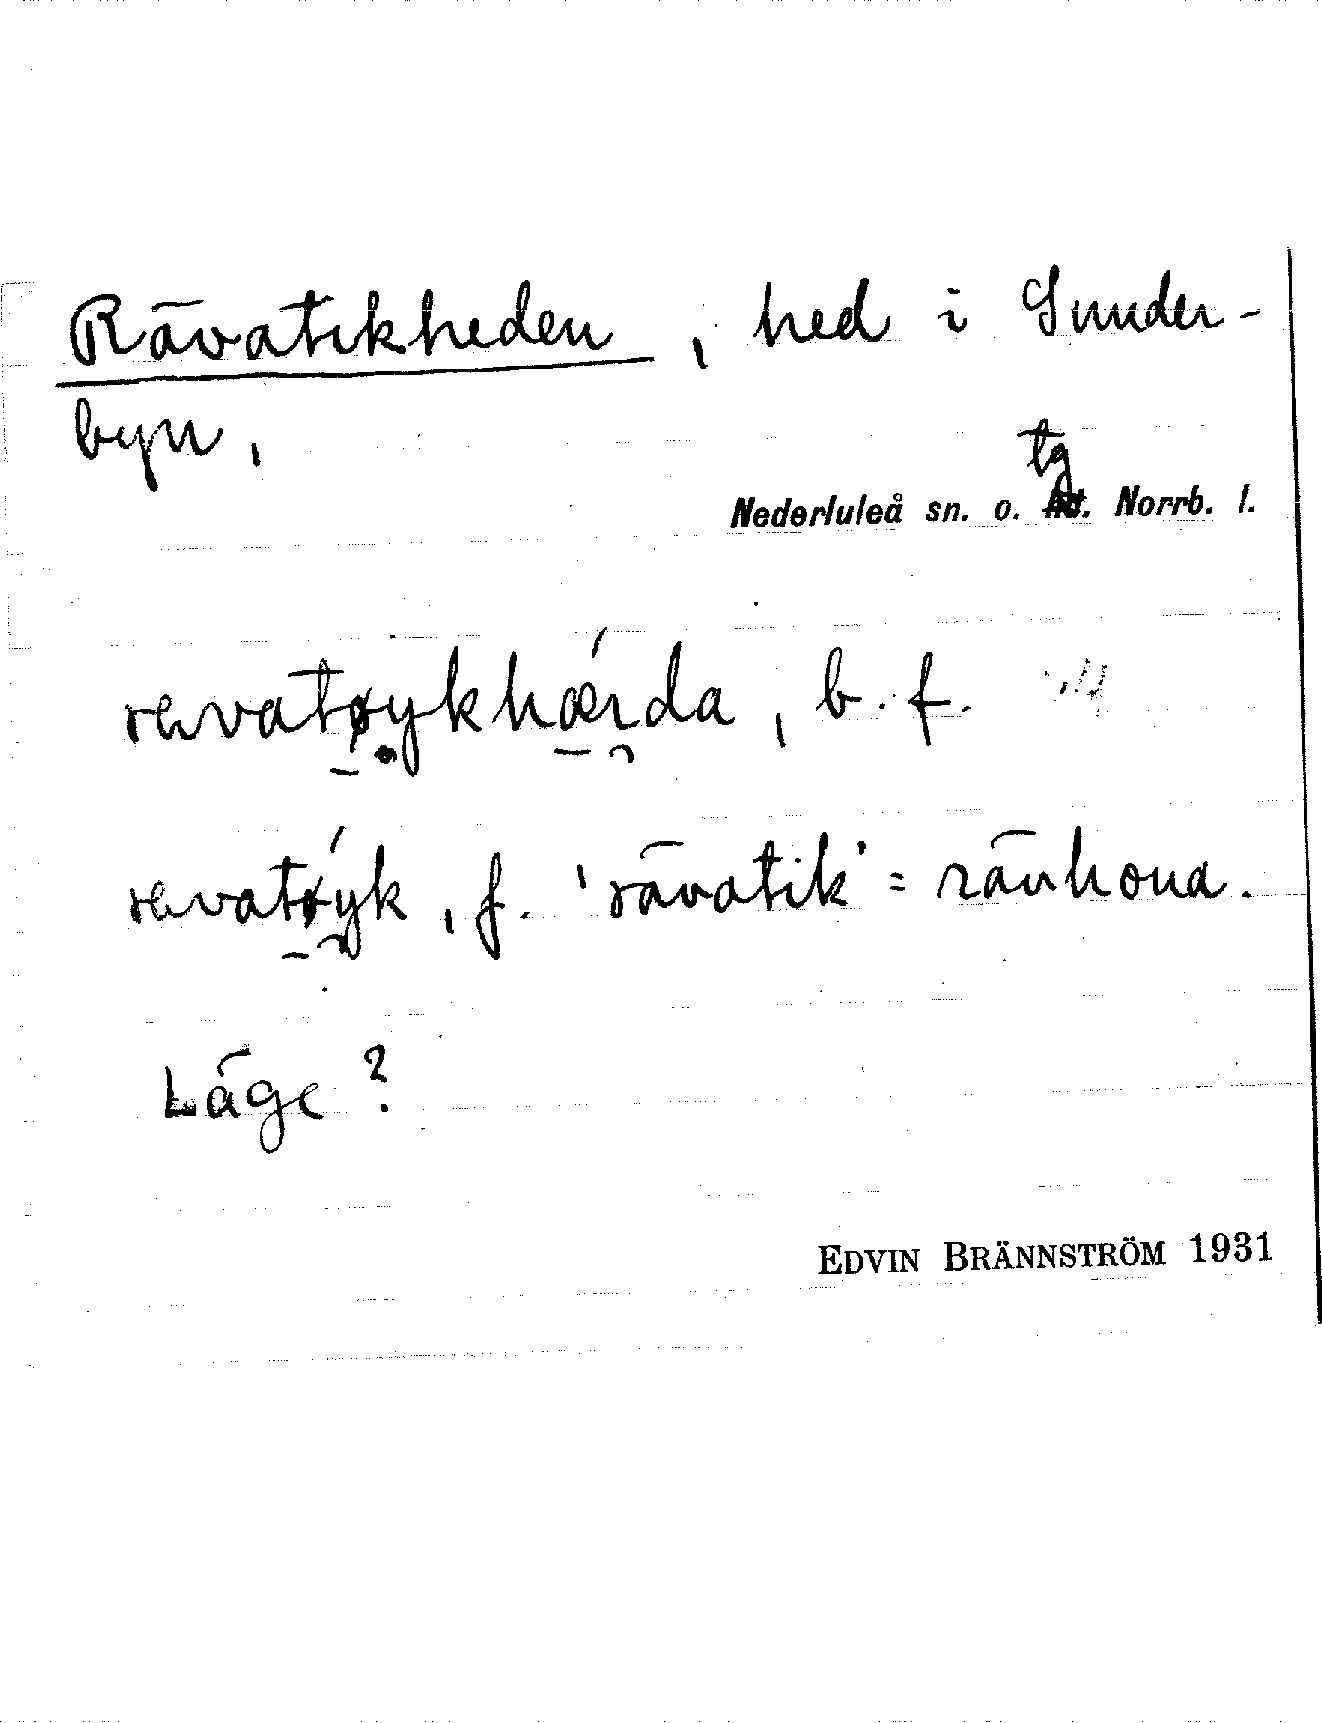 Rävatikheden, hed i Sunder-
byn,
Nederluleå sn. o. tg. Norrb. l.
revatøykhærda, b. f.
revatøyk, f. 'rävatik' = rävhona.
Läge?
EDVIN BRÄNNSTRÖM 1931